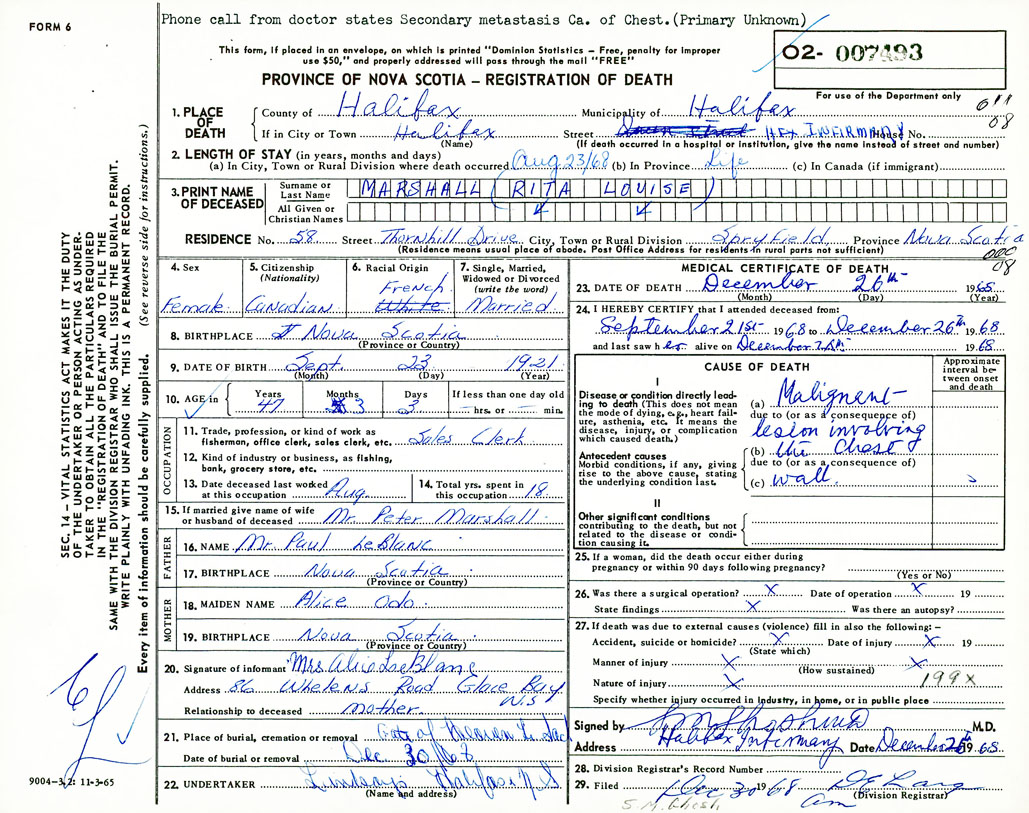 FORM 6
Phone call from doctor states Secondary metastasis Ca. of Chest.(Primary Unknown)
This form, if placed in an envelope, on which is printed "Dominion Statistics – Free, penalty for improper
use $50," and properly addressed will pass through the mail "FREE"
02- 007493
PROVINCE OF NOVA SCOTIA – REGISTRATION OF DEATH
For use of the Department only
1. PLACE OF DEATH
County of Halifax Municipality of Halifax
If in City or Town Halifax Street HFX INFIRMARY House No.
(Name) (If death occurred in a hospital or institution, give the name instead of street and number)
011
08
2. LENGTH OF STAY (in years, months and days)
(a) In City, Town or Rural Division where death occurred Aug 23/68 (b) In Province Life (c) In Canada (if immigrant)
3. PRINT NAME OF DECEASED
Surname or Last Name MARSHALL (RITA LOUISE)
All Given or Christian Names
RESIDENCE No. 58 Street Thornhill Drive City, Town or Rural Division Spryfield Province Nova Scotia
(Residence means usual place of abode. Post Office Address for residents in rural parts not sufficient)
08
4. Sex
Female
5. Citizenship (Nationality)
Canadian
6. Racial Origin
French
White
7. Single, Married, Widowed or Divorced (write the word)
Married
8. BIRTHPLACE Nova Scotia
(Province or Country)
9. DATE OF BIRTH Sept. 23 1921
(Month) (Day) (Year)
10. AGE in Years Months Days If less than one day old
47 3 3 hrs. or min.
OCCUPATION
11. Trade, profession, or kind of work as
fisherman, office clerk, sales clerk, etc. Sales Clerk
12. Kind of industry or business, as fishing,
bank, grocery store, etc.
13. Date deceased last worked
at this occupation Aug.
14. Total yrs. spent in
this occupation 18
15. If married give name of wife
or husband of deceased Mr. Peter Marshall
FATHER
16. NAME Mr. Paul LeBlanc
17. BIRTHPLACE Nova Scotia
(Province or Country)
MOTHER
18. MAIDEN NAME Alice Odo
19. BIRTHPLACE Nova Scotia
(Province or Country)
20. Signature of informant Mrs Alice LeBlanc
Address 86 Whelens Road Glace Bay
N.S
Relationship to deceased mother.
21. Place of burial, cremation or removal Gate of Heaven L. Sack
Date of burial or removal Dec. 30/68
22. UNDERTAKER Lindsays Halifax N S
(Name and address)
MEDICAL CERTIFICATE OF DEATH
23. DATE OF DEATH December 26th 1968
(Month) (Day) (Year)
24. I HEREBY CERTIFY that I attended deceased from:
September 21st 1968 to December 26th 1968
and last saw her alive on December 26th 1968
CAUSE OF DEATH
Approximate interval between onset and death
I
Disease or condition directly leading to death (This does not mean the mode of dying, e.g., heart failure, asthenia, etc. It means the disease, injury, or complication which caused death.)
(a) Malignant
due to (or as a consequence of)
lesion involving
Antecedent causes
Morbid conditions, if any, giving rise to the above cause, stating the underlying condition last.
(b) the Chest
due to (or as a consequence of)
(c) wall.
II
Other significant conditions
contributing to the death, but not related to the disease or condition causing it.
25. If a woman, did the death occur either during
pregnancy or within 90 days following pregnancy?
(Yes or No)
26. Was there a surgical operation? X Date of operation X 19
State findings X Was there an autopsy?
27. If death was due to external causes (violence) fill in also the following: –
Accident, suicide or homicide? X Date of injury X 19
(State which)
Manner of injury X
(How sustained)
Nature of injury X 199X
Specify whether injury occurred in industry, in home, or in public place
Signed by M.D.
Address Halifax Infirmary Date December 26th 1968
28. Division Registrar's Record Number
29. Filed Dec 30 1968
(Division Registrar)
am
SEC. 14 – VITAL STATISTICS ACT MAKES IT THE DUTY
OF THE UNDERTAKER OR PERSON ACTING AS UNDER-
TAKER TO OBTAIN ALL THE PARTICULARS REQUIRED
IN THE "REGISTRATION OF DEATH" AND TO FILE THE
SAME WITH THE DIVISION REGISTRAR WHO SHALL ISSUE THE BURIAL PERMIT.
WRITE PLAINLY WITH UNFADING INK. THIS IS A PERMANENT RECORD.
Every item of information should be carefully supplied. (See reverse side for instructions.)
9004-3,2: 11-3-65